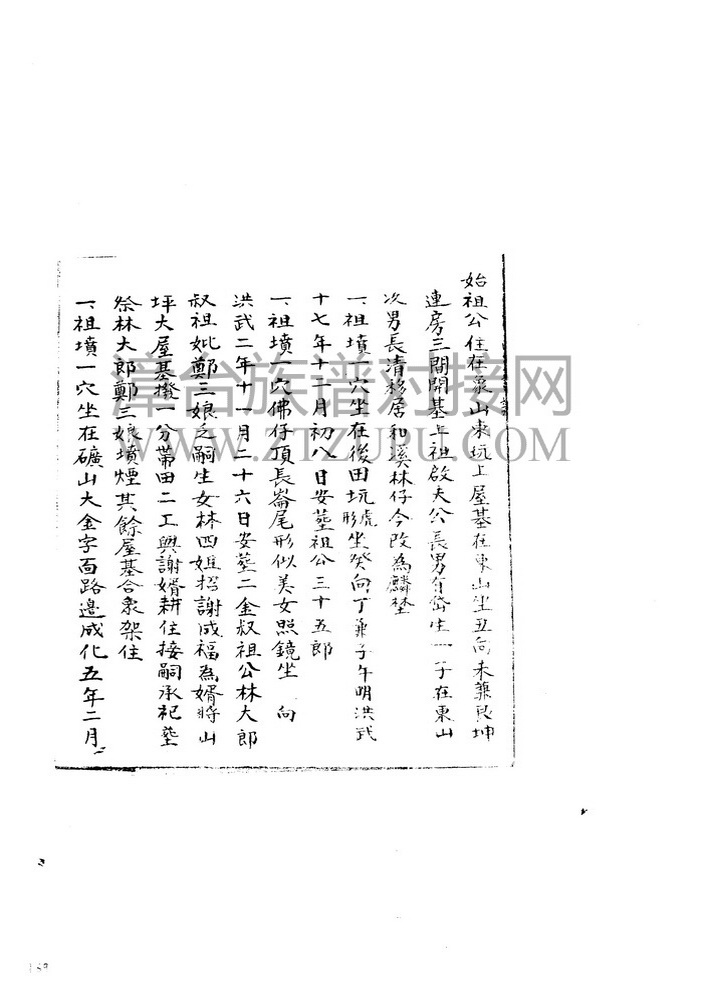 始祖公住在象山東坑上屋基在東山坐丑向未兼艮坤
連房三間開基上祖啟夫公長男有岱生一子在東山
次男長清移居和溪林仔今改為麟埜
一、祖墳一穴坐在後田坑虎形坐癸向丁兼子午明洪武
十七年十一月初八日安塟祖公三十五郎
一、祖墳一穴佛仔頂長崙尾形似美女照鏡坐 向
洪武二年十一月二十六日安塟二金叔祖公林大郎
叔祖妣鄭三娘乏嗣生女林四娘招謝成福為婿將山
坪大屋基撥一分帶田二工與謝婿耕住接嗣承祀塟
祭林大郎鄭三娘墳煙其餘屋基合眾架住
一、祖墳一穴坐在礦山大金字面路邊成化五年二月
漳台族谱对接网
WWW.ZTZUPU.COM